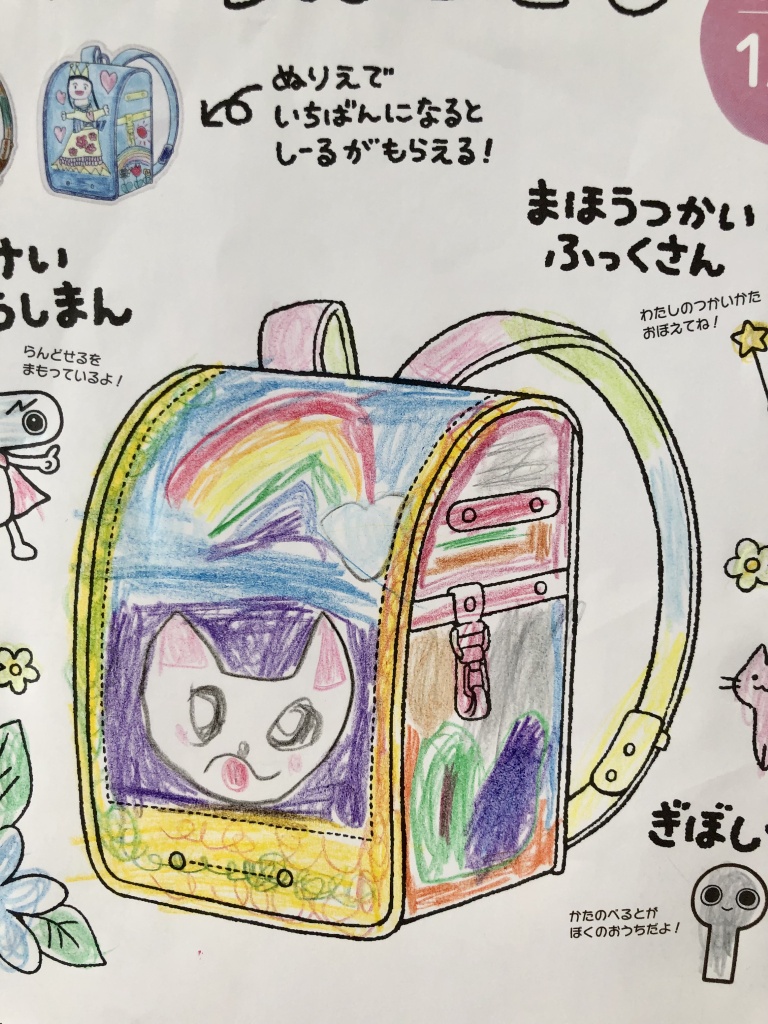 ぬりえで
いちばんになると
しーるがもらえる！
まほうつかい
ふっくさん
わたしのつかいかた
おぼえてね！
けい
しまん
らんどせるを
まもっているよ！
ぎぼし
かたのべるとが
ぼくのおうちだよ！